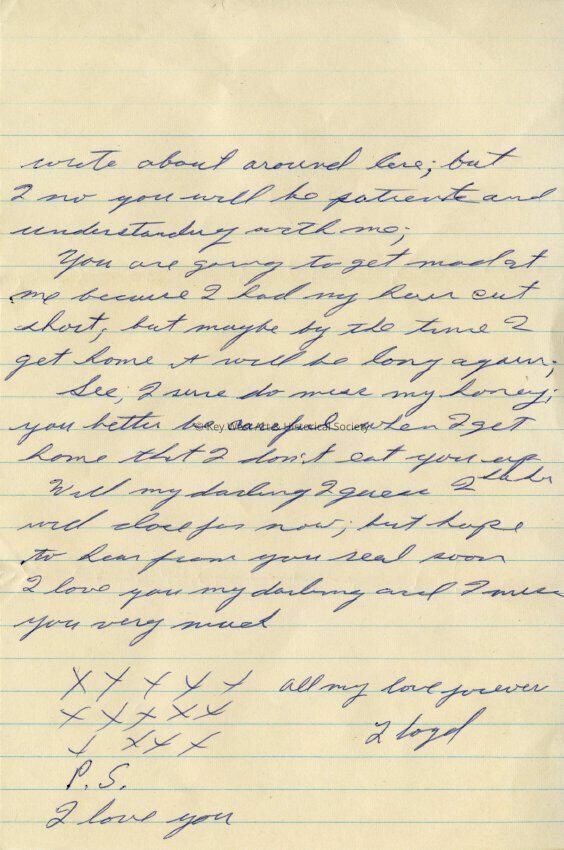 write about around here; but
I no you will be patient and
understanding with me;
You are going to get mad at
me because I had my hair cut
short; but maybe by the time I
get home it will be long again;
Gee, I sure do miss my honey;
you better be careful when I get
home that I don't eat you up
Well my darling I guess I
will close for now; but hope
to hear from you real soon
I love you my darling and I miss
you very much
X X X X X all my love forever
X X X X X Lloyd
X X X X
P.S.
I love you
©Key West Art & Historical Society